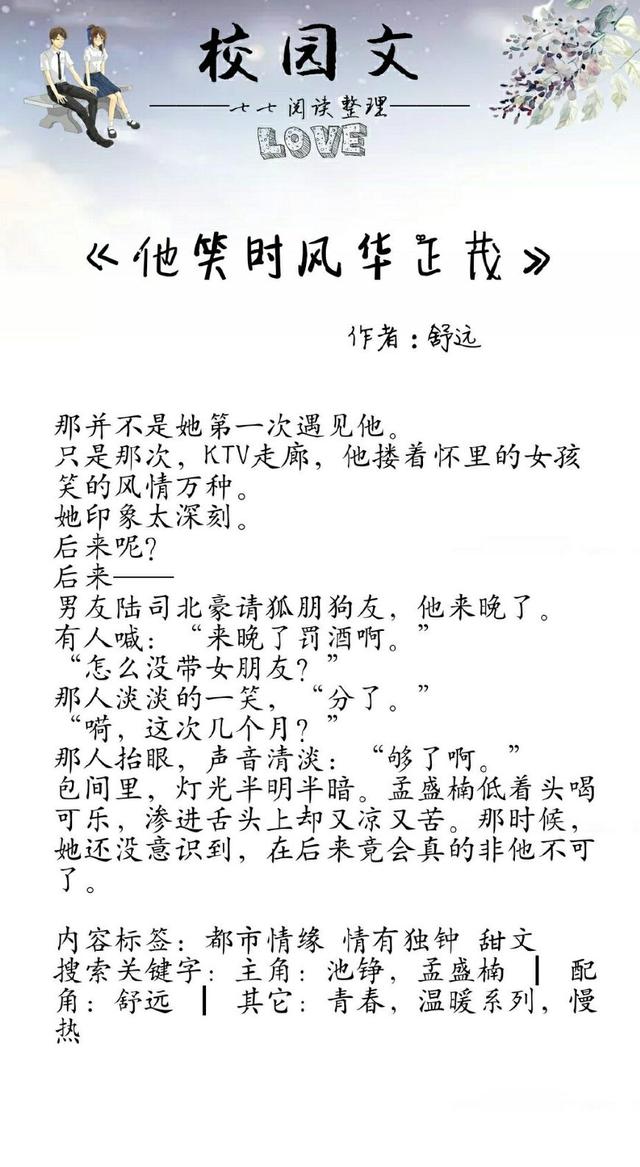 校园文
七七阅读整理
LOVE
《他笑时风华正茂》
作者：舒远
那并不是她第一次遇见他。
只是那次，KTV走廊，他搂着怀里的女孩
笑的风情万种。
她印象太深刻。
后来呢？
后来——
男友陆司北豪请狐朋狗友，他来晚了。
有人喊：“来晚了罚酒啊。”
“怎么没带女朋友？”
那人淡淡的一笑，“分了。”
“嗬，这次几个月？”
那人抬眼，声音清淡：“够了啊。”
包间里，灯光半明半暗。孟盛楠低着头喝
可乐，渗进舌头上却又凉又苦。那时候，
她还没意识到，在后来竟会真的非他不可
了。
内容标签：都市情缘 情有独钟 甜文
搜索关键字：主角：池铮，孟盛楠 ┃ 配
角：舒远 ┃ 其它：青春，温暖系列，慢
热